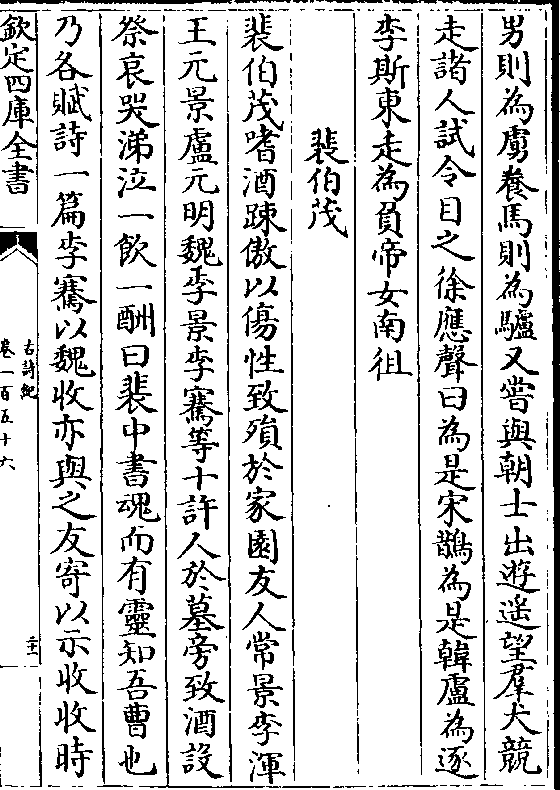 男則為虜養馬則為驢又嘗與朝士出遊遥望羣犬競
走諸人試令目之徐應聲曰為是宋鵲為是韓盧為逐
李斯東走為負帝女南徂
裴伯茂
裴伯茂嗜酒踈傲以傷性致殞於家園友人常景李渾
王元景盧元明魏季景李騫等十許人於墓旁致酒設
祭哀哭涕泣一飲一酬曰裴中書魂而有靈知吾曹也
乃各賦詩一篇李騫以魏收亦與之友寄以示收收時
欽定四庫全書
古詩紀
卷一百五十六